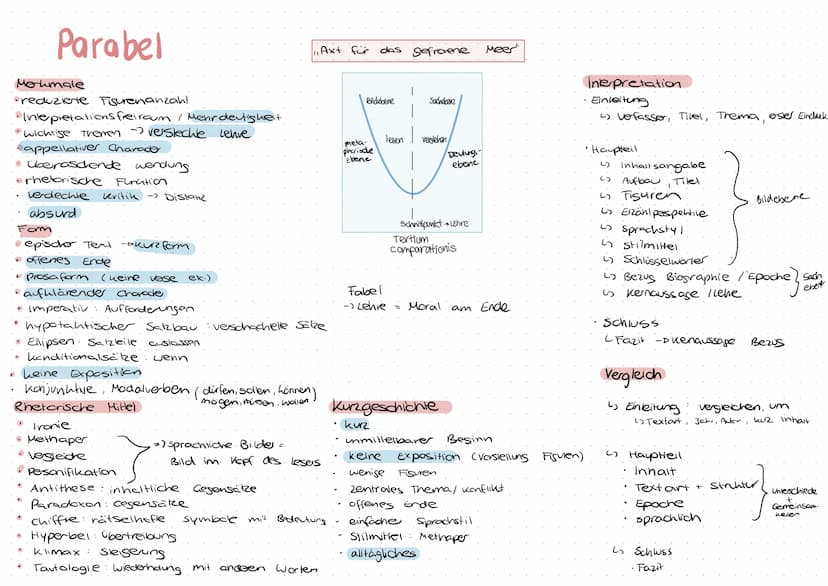 Parabel
„Axt für das gefrorene Meer"
Merkmale
reduzierte Figurenanzahl
Interpretationsfreiraum / Mehrdeutigkeit
wichtige Themen -> versteckte Lehre
appellativer Charakter
überraschende Wendung
rhetorische Funktion
verdeckte Kritik -> Distanz
absurd
Form
epischer Text -> Kurzform
offenes Ende
Prosaform (keine Verse etc.)
aufklärender Charakter
Imperativ: Aufforderungen
hypotaktischer Satzbau: verschachelte Sätze
Ellipsen: Satzteile auslassen
Konditionalsätze: wenn
keine Exposition
Konjunktive, Modalverben (dürfen, sollen, können,
mögen, müssen, wollen)
Rhetorische Mittel
Ironie
Methaper
Vergleiche
Personifikation
=> sprachliche Bilder =
Bild im Kopf des Lesers
Antithese: inhaltliche Gegensätze
Paradoxon: Gegensätze
Chiffre: rätselhafte Symbole mit Bedeutung
Hyperbel: Übertreibung
Klimax: Steigerung
Tautologie: Wiederholung mit anderen Worten
Bildebene
Sachebene
metaphorische
Ebene
lesen
verstehen
Deutungsebene
Schnittpunkt -> Lehre
Tertium
comparationis
Fabel
-> Lehre = Moral am Ende
Kurzgeschichte
kurz
unmittelbarer Beginn
keine Exposition (Vorstellung Figuren)
wenige Figuren
zentrales Thema / Konflikt
offenes Ende
einfacher Sprachstil
Stilmittel: Methaper
alltägliches
Interpretation
Einleitung
↳ Verfasser, Titel, Thema, erster Eindruck
Hauptteil
↳ Inhaltsangabe
↳ Aufbau, Titel
↳ Figuren
↳ Erzählperspektive
↳ Sprachstyl
↳ Stilmittel
↳ Schlüsselwörter
Bildebene
↳ Bezug Biographie / Epoche
↳ Kernaussage / Lehre
Sachebene
Schluss
↳ Fazit -> Kernaussage Bezug
Vergleich
↳ Einleitung: vergleichen, um
↳ Textart, Jahr, Autor, kurz Inhalt
↳ Hauptteil
Inhalt
Textart + Struktur
Epoche
sprachlich
Unterschiede
+
Gemeinsamkeiten
↳ Schluss
Fazit